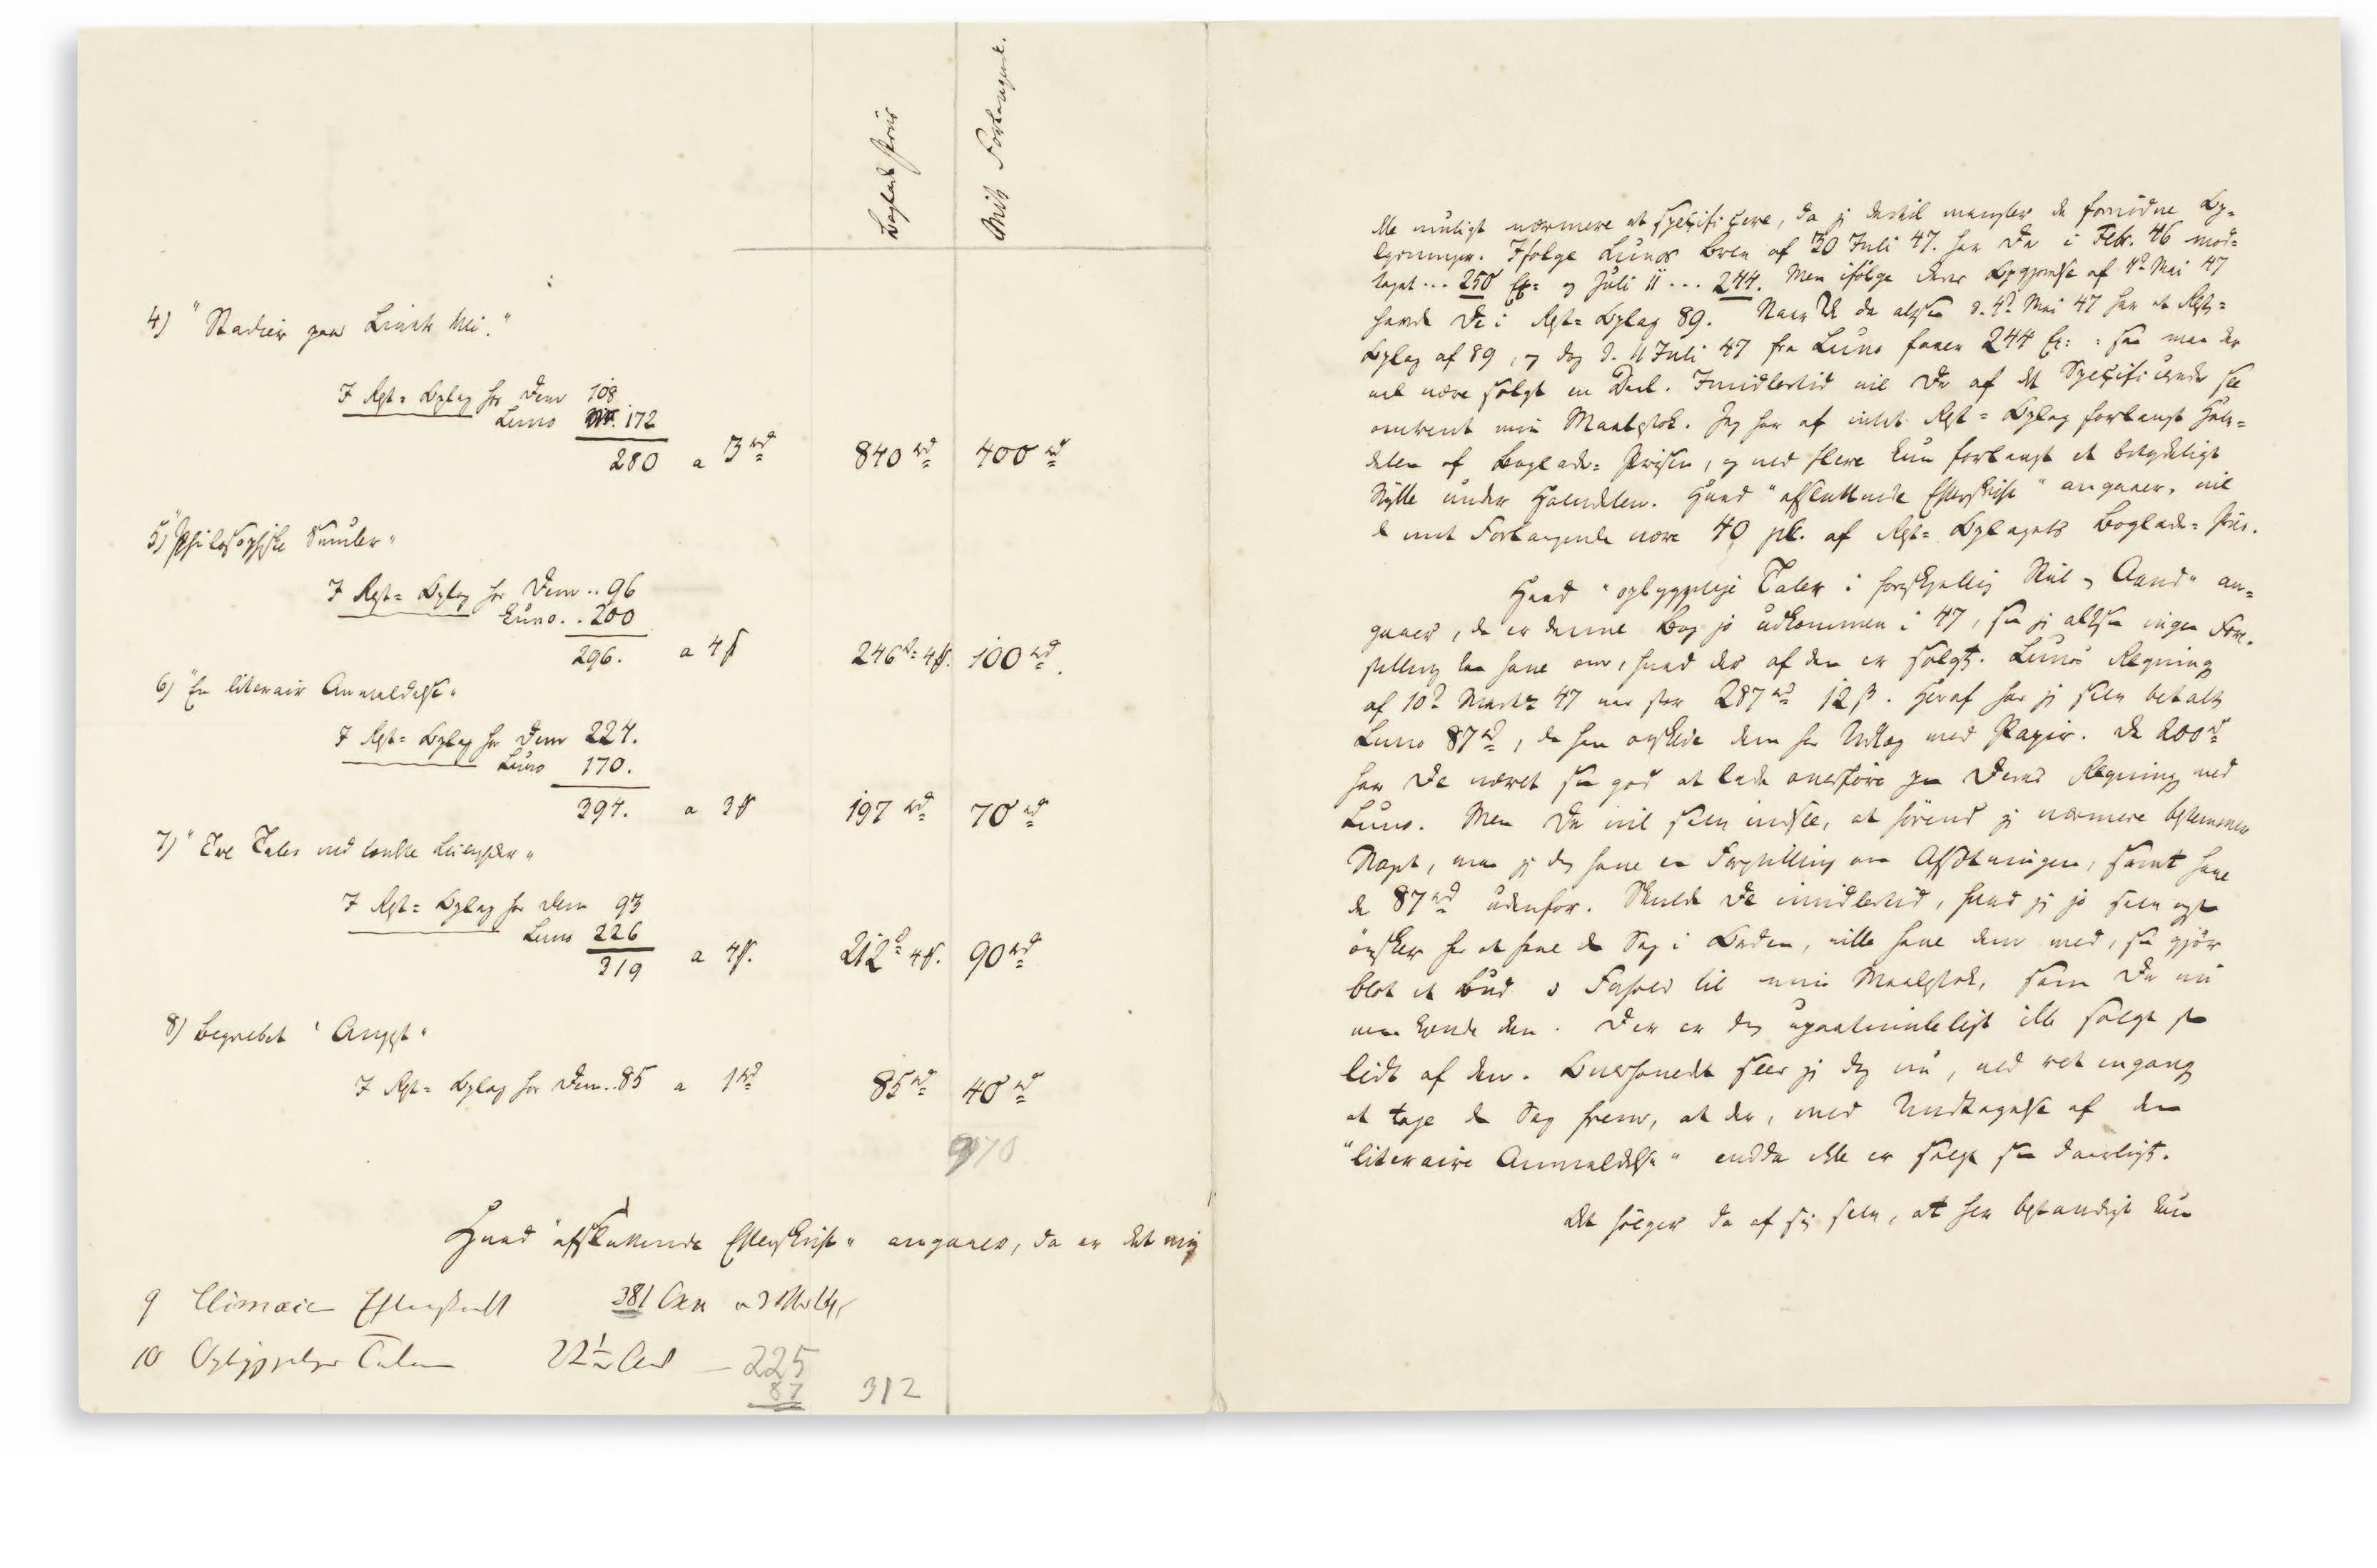 Boglade Priis
Mit Forlangende.
4) "Stadier paa Livets Vei."
I Rest-Oplag hos Dem 108
Luno 172
280 a 3 rd
840 rd 400 rd
5) "Philosophiske Smuler"
I Rest-Oplag hos Dem .. 96
Luno .. 200
296. a 5
246 rd 100 rd.
6) "En literair Anmeldelse"
I Rest-Oplag hos Dem 224.
Luno 170.
394. a 3
197 rd 70 rd
7) "Tre Taler ved tænkte Leiligheder"
I Rest-Oplag hos Dem 93
Luno 226
319 a 4
212 rd 90 rd
8) Begrebet "Angest"
I Rest-Oplag hos Dem .. 85 a 1 rd
85 rd 40 rd
970
Hvad "afsluttende Efterskrift" angaaer, da er det mig
9 Efterskrift 381
10 Opbyggelige Taler 22½ — 225
87 312
ikke muligt nærmere at specificere, da jeg dertil mangler de fornødne Op-
lysninger. Ifølge Lunos Brev af 30 Juli 47. har De i Febr. 46 mod-
taget ... 250 Ex: og Juli 11 ... 244. Men ifølge Deres Opgjørelse af 4d Mai 47
havde De i Rest-Oplag 89. Naar De da altsaa d. 4d Mai 47 har et Rest-
Oplag af 89, og dog d. 11 Juli 47 fra Luno faaer 244 Ex: : saa maa der
vel være solgt en Deel. Imidlertid vil De af det Specificerede see
omtrent min Maalestok. Jeg har af intet Rest-Oplag forlangt Halv-
delen af Boglade-Prisen, og ved flere kun forlangt et betydeligt
Stykke under Halvdelen. Hvad "afsluttende Efterskrift" angaaer, vil
da mit Forlangende være 40 pC. af Rest-Oplagets Boglade-Priis.
Hvad "opbyggelige Taler i forskjellig Aand" an-
gaaer, da er denne Bog jo udkommen i 47, saa jeg altsaa ingen Fore-
stilling kan have om, hvad der af den er solgt. Lunos Regning
af 10d Marts 47 var stor 287 rd 12 ß. Heraf har jeg selv betalt
Luno 87 rd, da han ønskede dem for Udlæg med Papir. De 200 rd
har De været saa god at lade overføre paa Deres Regning med
Luno. Men De vil selv indsee, at førend jeg nærmere bestemmer
Noget, maa jeg dog have en Forestilling om Afsætningen, samt have
de 87 rd udenfor. Skulde De imidlertid, hvad jeg jo selv ogsaa
ønsker for at have den Sag i Orden, ville have dem med, saa gjør
blot et Bud i Forhold til min Maalestok, som De nu
maa kjende den. Der er dog upaatvivleligt ikke solgt saa
lidt af den. Overhovedet seer jeg dog nu, ved ret engang
at tage den Sag frem, at der, med Undtagelse af den
"literaire Anmeldelse" endda ikke er solgt saa daarligt.
Det følger da af sig selv, at her bestandigt kun